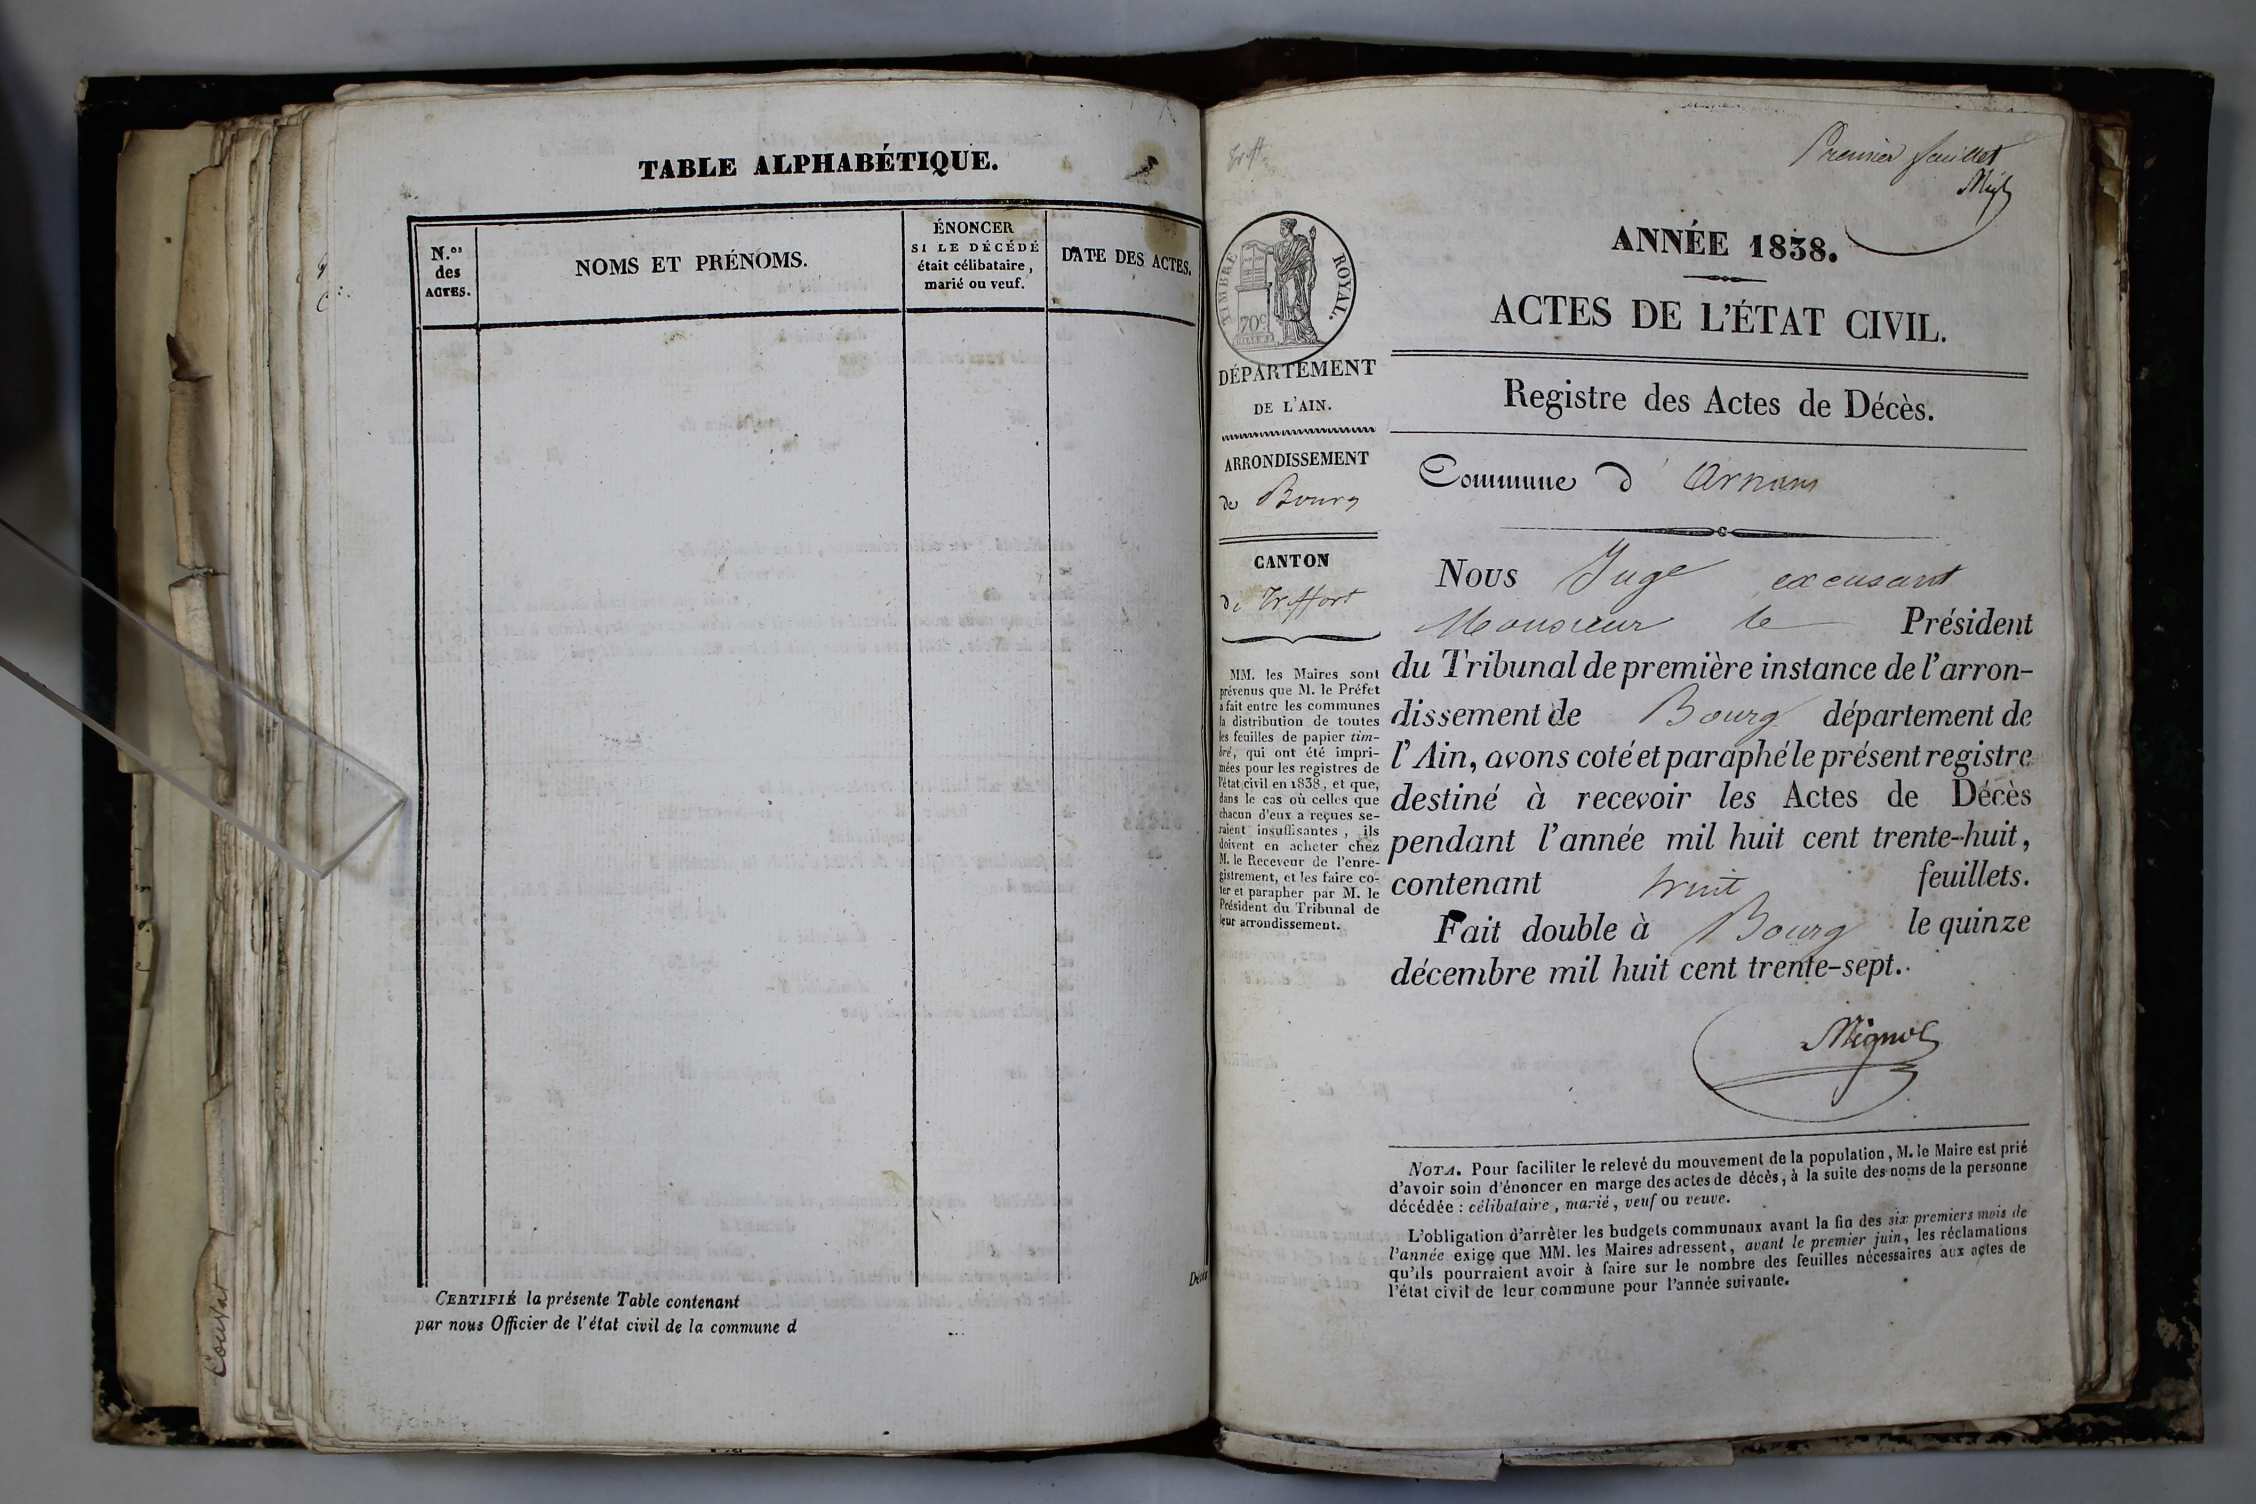 TABLE ALPHABÉTIQUE.
N.os
des
ACTES.
NOMS ET PRÉNOMS.
ÉNONCER
SI LE DÉCÉDÉ
était célibataire,
marié ou veuf.
DATE DES ACTES.
CERTIFIÉ la présente Table contenant
par nous Officier de l'état civil de la commune d
Premier feuillet
ANNÉE 1838.
ACTES DE L'ÉTAT CIVIL.
Registre des Actes de Décès.
TIMBRE ROYAL.
70c
DÉPARTEMENT
DE L'AIN.
ARRONDISSEMENT
de Bourg
CANTON
de Treffort
MM. les Maires sont
prévenus que M. le Préfet
a fait entre les communes
la distribution de toutes
les feuilles de papier tim-
bré, qui ont été impri-
mées pour les registres de
l'état civil en 1838, et que,
dans le cas où celles que
chacun d'eux a reçues se-
raient insuffisantes, ils
doivent en acheter chez
M. le Receveur de l'enre-
gistrement, et les faire co-
ter et parapher par M. le
Président du Tribunal de
leur arrondissement.
Commune d'Arnans
Nous Juge excusant
Monsieur le Président
du Tribunal de première instance de l'arron-
dissement de Bourg département de
l'Ain, avons coté et paraphé le présent registre
destiné à recevoir les Actes de Décès
pendant l'année mil huit cent trente-huit,
contenant huit feuillets.
Fait double à Bourg le quinze
décembre mil huit cent trente-sept.
NOTA. Pour faciliter le relevé du mouvement de la population, M. le Maire est prié
d'avoir soin d'énoncer en marge des actes de décès, à la suite des noms de la personne
décédée : célibataire, marié, veuf ou veuve.
L'obligation d'arrêter les budgets communaux avant la fin des six premiers mois de
l'année exige que MM. les Maires adressent, avant le premier juin, les réclamations
qu'ils pourraient avoir à faire sur le nombre des feuilles nécessaires aux actes de
l'état civil de leur commune pour l'année suivante.